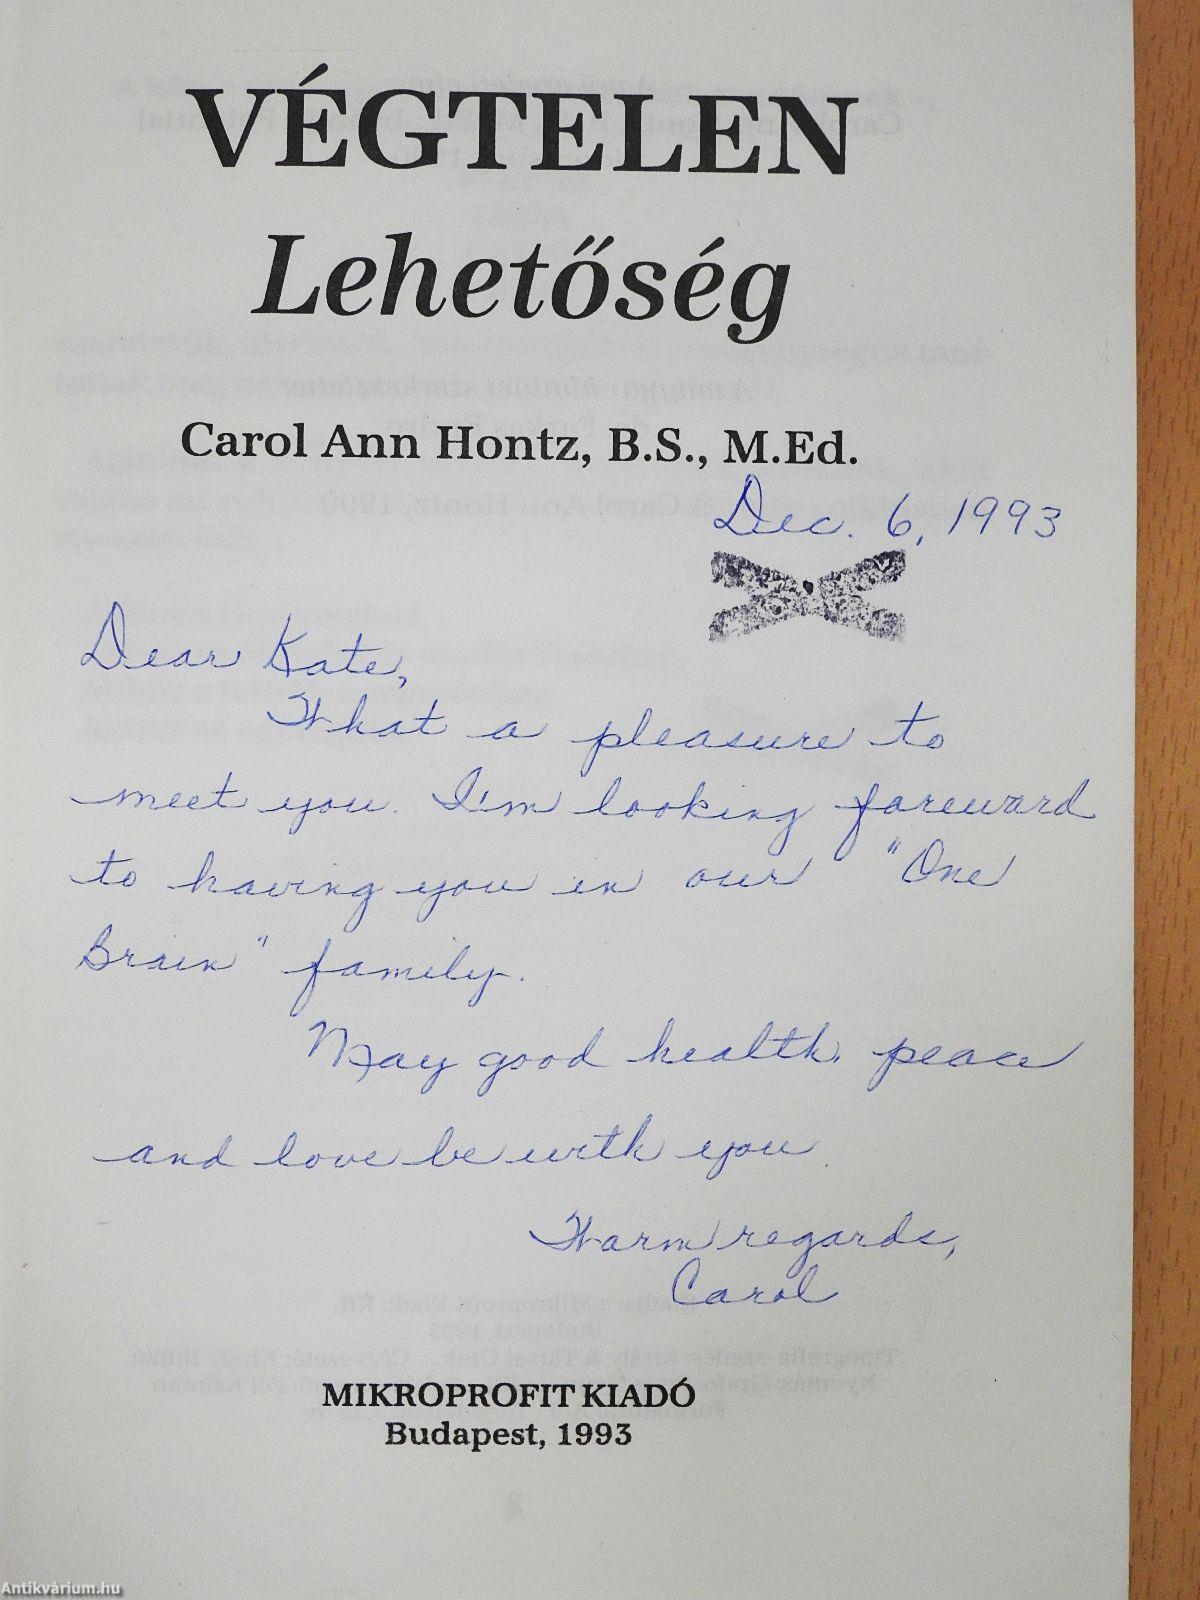 VÉGTELEN
Lehetőség
Carol Ann Hontz, B.S., M.Ed.
Dec. 6, 1993
Dear Kate,
What a pleasure to
meet you. I'm looking foreward
to having you in our "One
Brain" family.
May good health, peace
and love be with you.
Warm regards,
Carol
MIKROPROFIT KIADÓ
Budapest, 1993
Antikvárium.hu